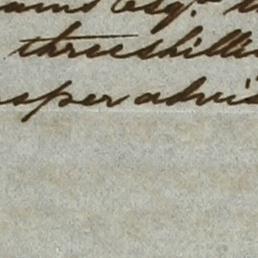 ams Esqr.
threeshilli
asper advis